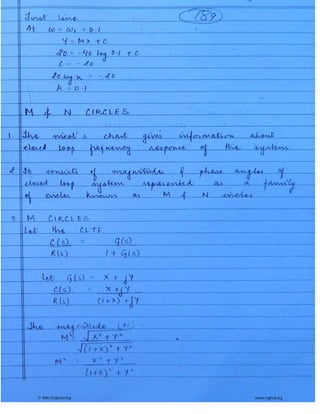 189
First line
At ω = ω₁ = 0.1
Y = Mx + C
20 = -40 log 0.1 + C
C = -20
20 log K = -20
K = 0.1
M & N CIRCLES
1 The nicol's chart gives information about
closed loop frequency response of the system
2. It consists of magnitudes & phase angles of
closed loop system represented as a family
of circles known as M & N circles
3 M CIRCLES
Let the CLTF
C(s) = G(s)
R(s) 1 + G(s)
Let G(s) = X + jY
C(s) = X + jY
R(s) (1+X) + jY
The magnitude (M)
M = √X² + Y²
√(1+X)² + Y²
M² = X² + Y²
(1+X)² + Y²